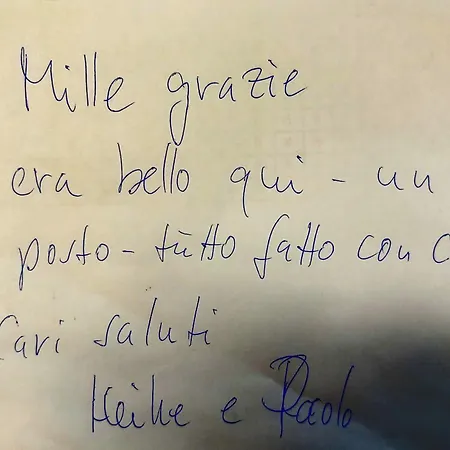 Mille grazie
era bello qui - un
posto - tutto fatto con
Cari saluti
Heike e Paolo